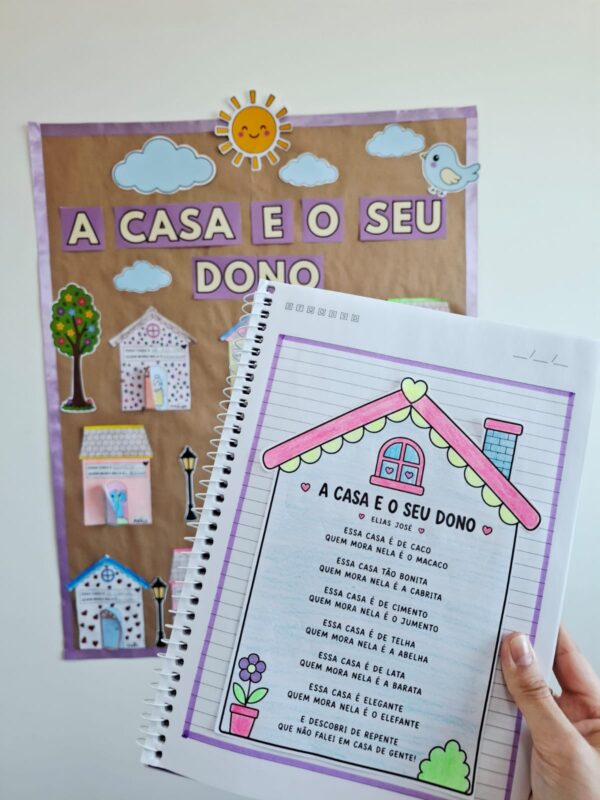 A CASA E O SEU
DONO
A CASA E O SEU DONO
ELIAS JOSÉ
ESSA CASA É DE CACO
QUEM MORA NELA É O MACACO
ESSA CASA TÃO BONITA
QUEM MORA NELA É A CABRITA
ESSA CASA É DE CIMENTO
QUEM MORA NELA É O JUMENTO
ESSA CASA É DE TELHA
QUEM MORA NELA É A ABELHA
ESSA CASA É DE LATA
QUEM MORA NELA É A BARATA
ESSA CASA É ELEGANTE
QUEM MORA NELA É O ELEFANTE
E DESCOBRI DE REPENTE
QUE NÃO FALEI EM CASA DE GENTE!